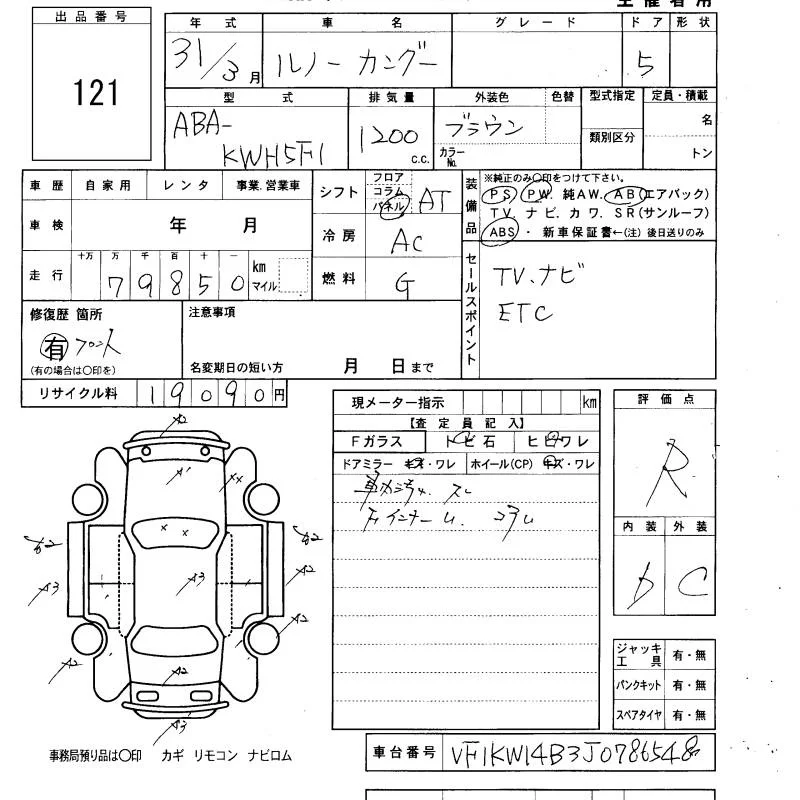 出品番号
121
年式 車名 グレード ドア 形状
31/3月 ルノー カングー 5
型式 排気量 外装色 色替 型式指定 定員・積載
ABA-KWH5F1 1200 c.c. ブラウン カラーNo. 類別区分 名 トン
車歴 自家用 レンタ 事業.営業車
車検 年 月
走行 十万 万 千 百 十 一 km マイル
79850
シフト フロア コラム パネル AT
冷房 AC
燃料 G
装備品 ※純正のみ〇印をつけて下さい。
PS PW. 純AW. AB(エアバック)
TV. ナビ. カワ. SR(サンルーフ)
ABS ・ 新車保証書←(注) 後日送りのみ
セールスポイント
TV.ナビ
ETC
修復歴 箇所
有 フロント
(有の場合は〇印を)
注意事項
名変期日の短い方 月 日まで
リサイクル料 19090円
現メーター指示 km
【査定員記入】
Fガラス トビ石 ヒビワレ
ドアミラー キズ・ワレ ホイール(CP) キズ・ワレ
評価点
R
内装 外装
D C
A2
A1
XX
X X
A3
A2
A3
A2
A2
A2
A3
ジャッキ工具 有・無
パンクキット 有・無
スペアタイヤ 有・無
事務局預り品は〇印 カギ リモコン ナビロム
車台番号 VF1KW14B3J0786548